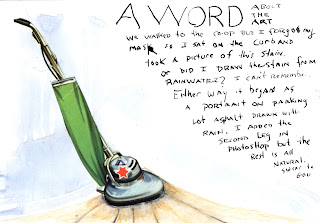 A WORD ABOUT
THE
ART
WE WALKED TO THE CO-OP BUT I FORGOT MY
MASK SO I SAT ON THE CURB AND
TOOK A PICTURE OF THIS STAIN.
OR DID I DRAW THE STAIN FROM
RAINWATER? I CAN'T REMEMBER.
EITHER WAY IT BEGAN AS
A PORTRAIT ON PARKING
LOT ASPHALT DRAWN WITH
RAIN. I ADDED THE
SECOND LEG IN
PHOTOSHOP BUT THE
REST IS ALL
NATURAL.
SWEAR TO
GOD